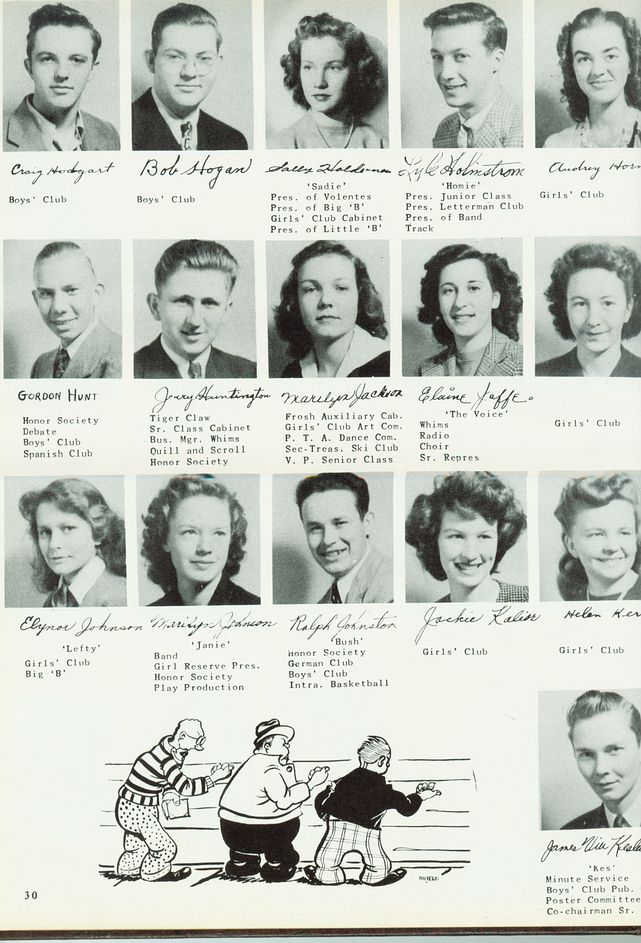 Craig Hodgart
Boys' Club
Bob Hogan
Boys' Club
Sally Holderman
'Sadie'
Pres. of Volentes
Pres. of Big 'B'
Girls' Club Cabinet
Pres. of Little 'B'
Lyle Holmstrom
'Homie'
Pres. Junior Class
Pres. Letterman Club
Pres. of Band
Track
Audrey Hor
Girls' Club
GORDON HUNT
Honor Society
Debate
Boys' Club
Spanish Club
Jerry Huntington
Tiger Claw
Sr. Class Cabinet
Bus. Mgr. Whims
Quill and Scroll
Honor Society
Marilyn Jackson
Frosh Auxiliary Cab.
Girls' Club Art Com.
P. T. A. Dance Com.
Sec-Treas. Ski Club
V. P. Senior Class
Elaine Jaffe
'The Voice'
Whims
Radio
Choir
Sr. Repres
Girls' Club
Elynor Johnson
'Lefty'
Girls' Club
Big 'B'
Marilyn Johnson
'Janie'
Band
Girl Reserve Pres.
Honor Society
Play Production
Ralph Johnston
'Bush'
Honor Society
German Club
Boys' Club
Intra. Basketball
Jackie Kalior
Girls' Club
Helen Ker
Girls' Club
James
'Kes'
Minute Service
Boys' Club Pub.
Poster Committee
Co-chairman Sr.
30